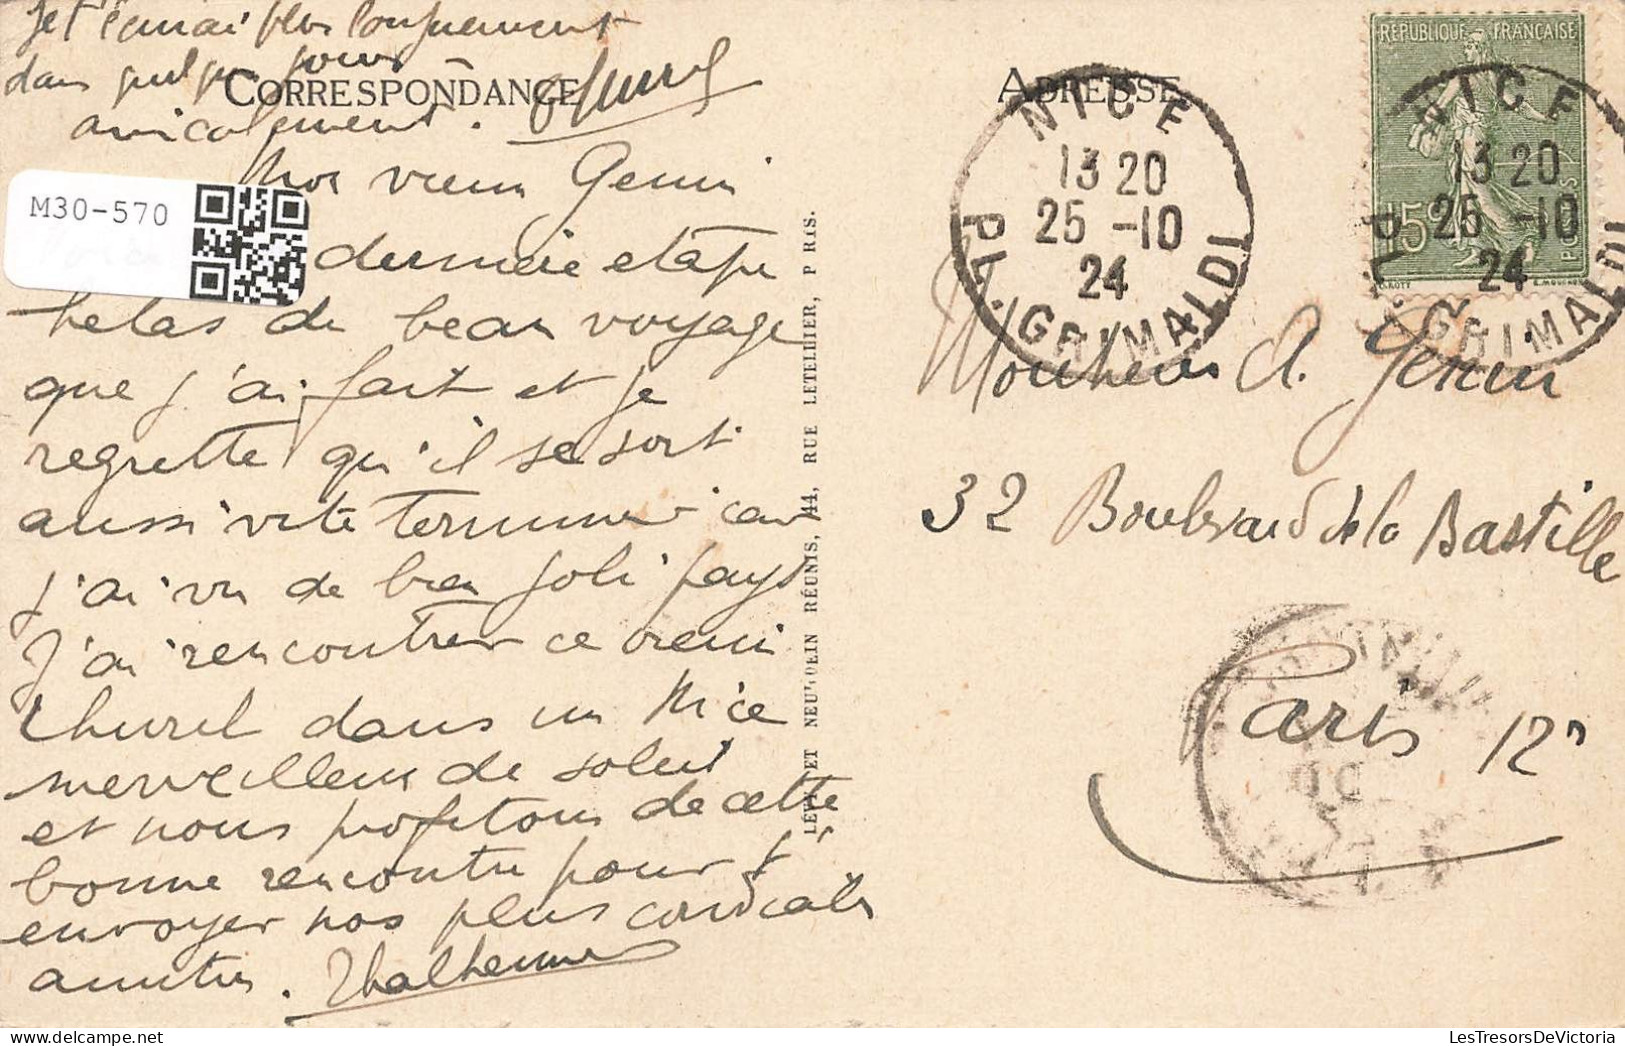 Je t'écrirai plus longuement
dans quelques jours
CORRESPONDANCE
amicalement. Churel
Mon vieux Genin
M30-570
dernière étape
helas du beau voyage
que j'ai fait et je
regrette qu'il se soit
aussi vite terminer car
j'ai vu de bien joli pays
J'ai rencontrer ce vieux
Churel dans un Nice
merveilleux de soleil
et nous profitons de cette
bonne rencontre pour t
envoyer nos plus cordiales
amitiés. Thalheimer
LEVY ET NEURDEIN RÉUNIS, 44, RUE LETELLIER, P RIS.
ADRESSE
NICE
13 20
25 -10
24
PL. GRIMALDI
REPUBLIQUE FRANÇAISE
15c
POSTES
O. ROTY
E. MOUCHON
NICE
13 20
25 -10
24
PL. GRIMALDI
Monsieur A. Genin
32 Boulevard de la Bastille
Paris 12e
LesTresorsDeVictoria.com